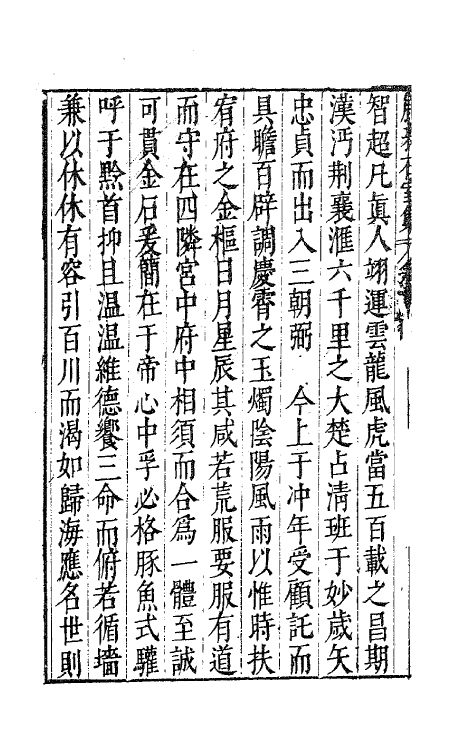 智超凡真人翊運雲龍風虎當五百載之昌期
漢沔荆襄滙六千里之大楚占清班于妙歲矢
忠貞而出入三朝弼　今上于冲年受顧託而
具瞻百辟調慶霄之玉燭陰陽風雨以惟時扶
宥府之金樞日月星辰其咸若荒服要服有道
而守在四隣宮中府中相須而合爲一體至誠
可貫金石爰簡在于帝心中孚必格豚魚式驩
呼于黔首抑且温温維德饗三命而俯若循墻
兼以休休有容引百川而渴如歸海應名世則